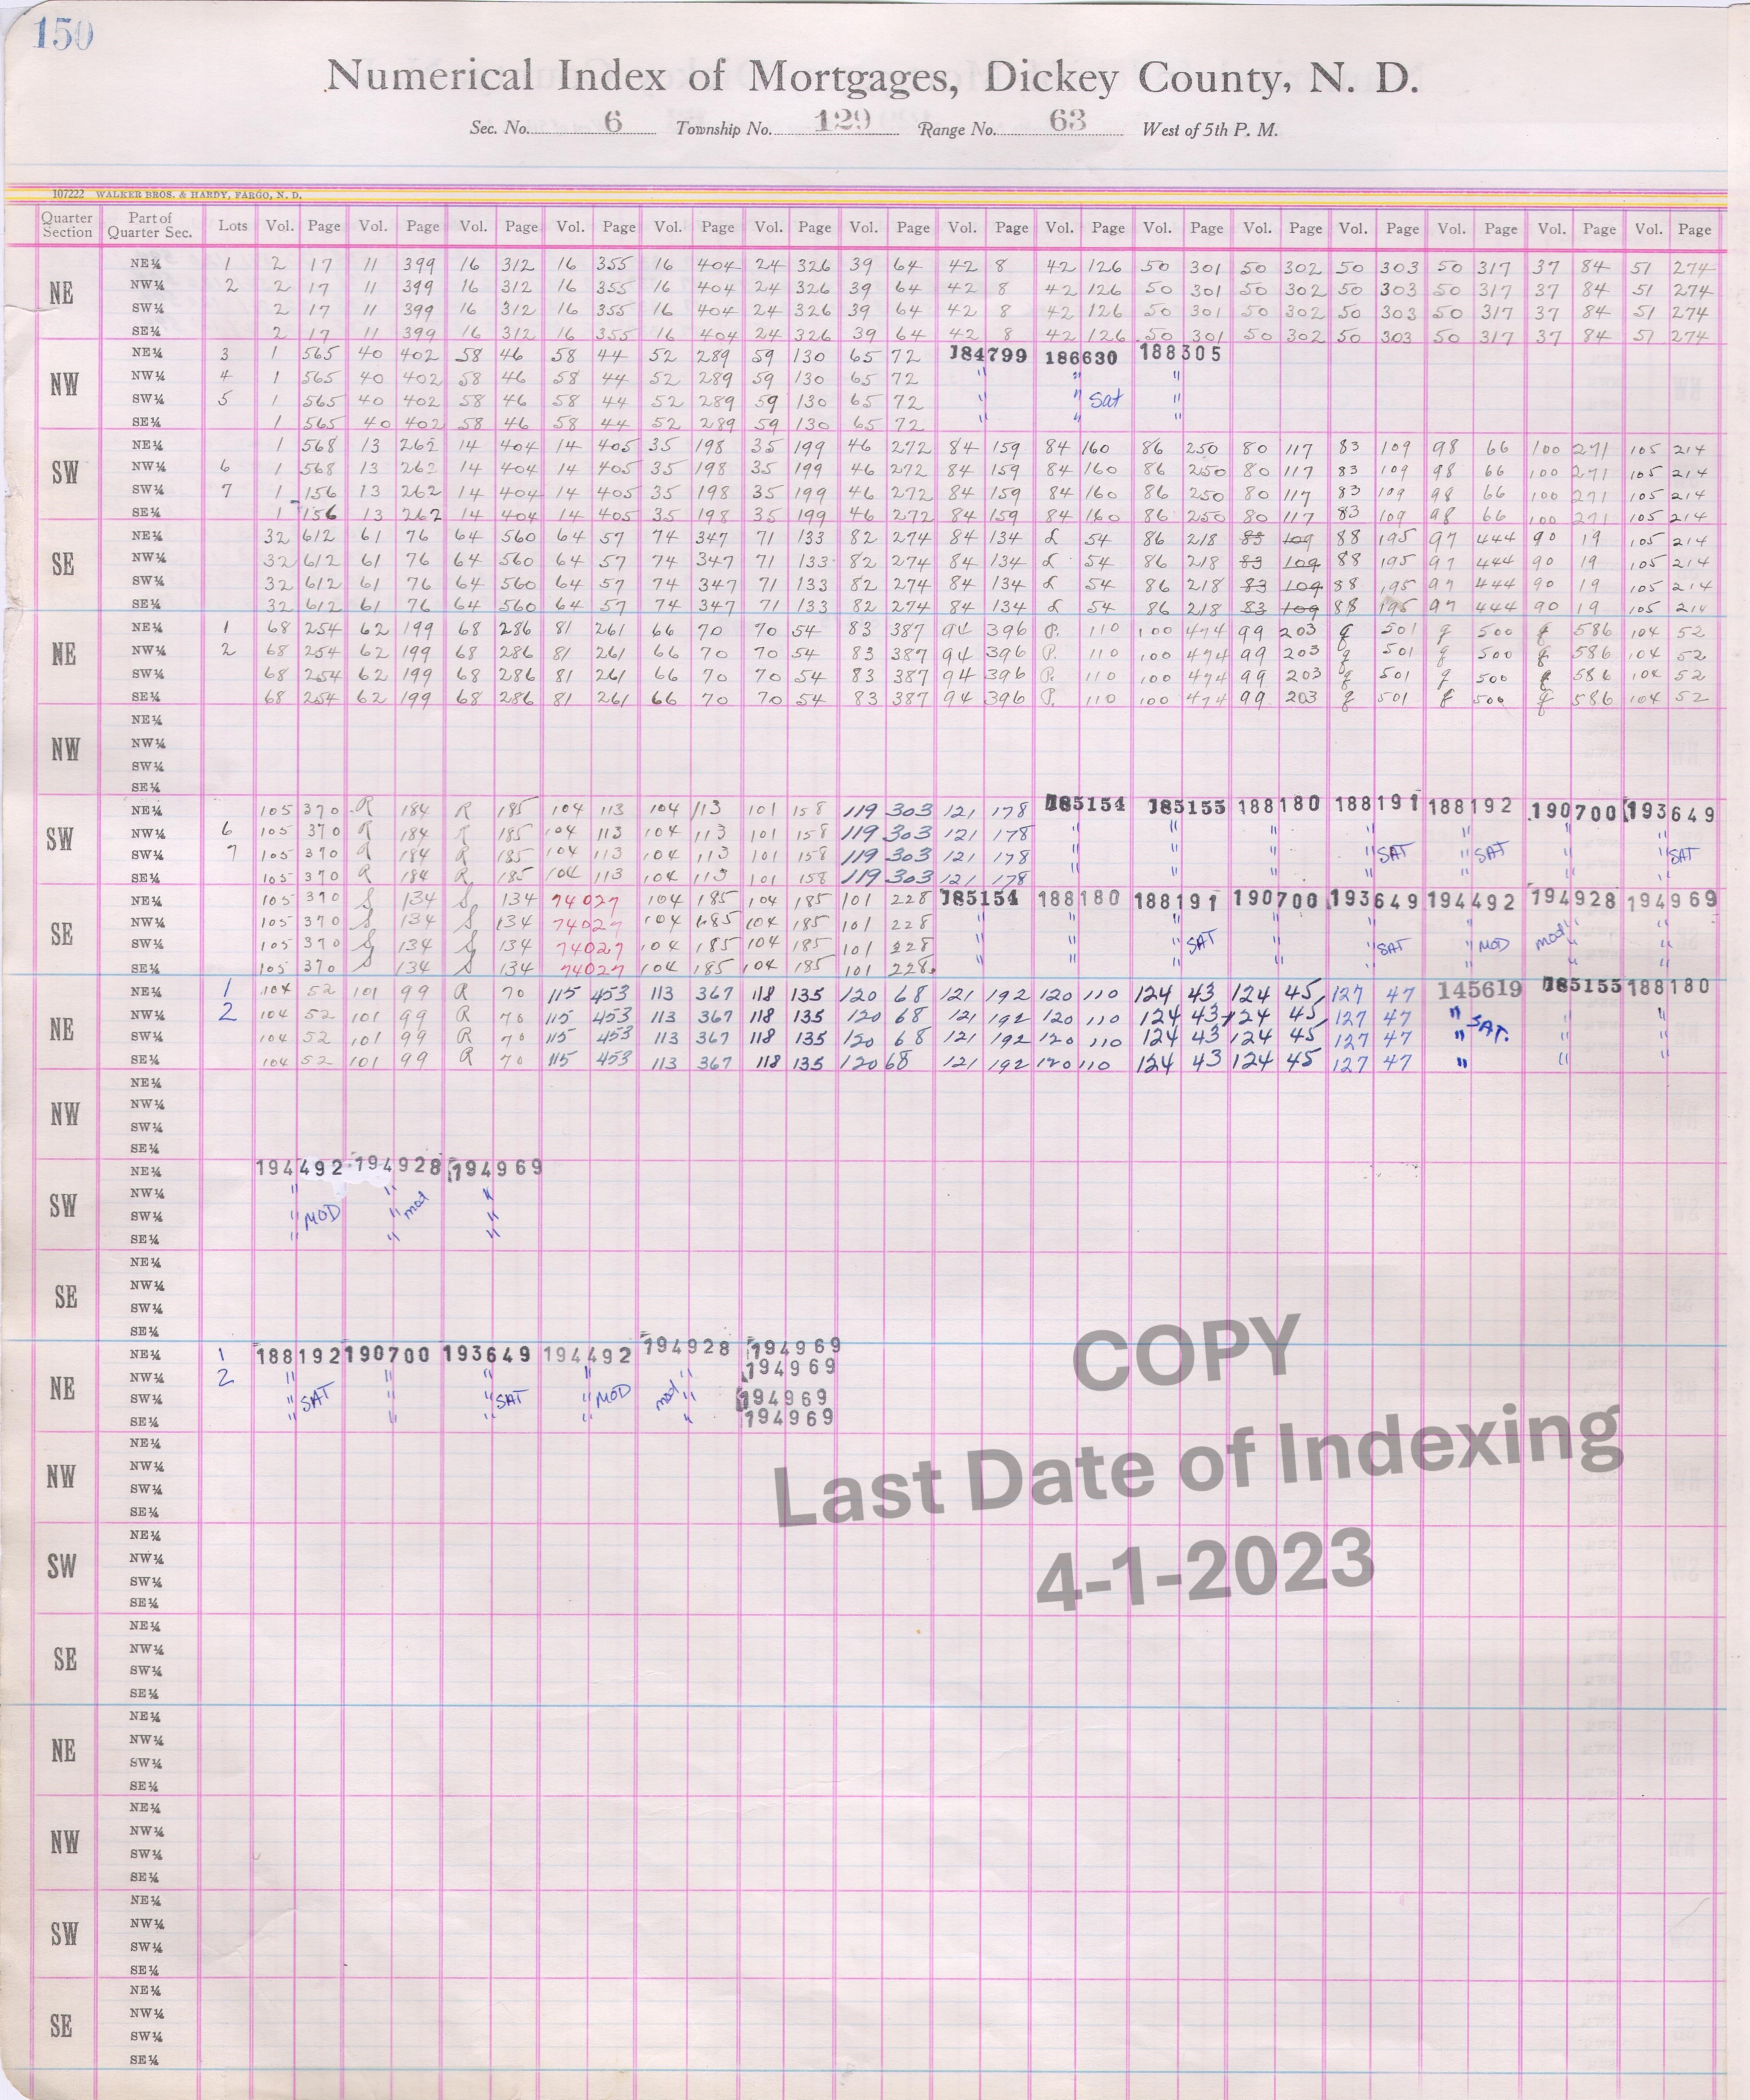 150
Numerical Index of Mortgages, Dickey County, N. D.
Sec. No. 6 Township No. 129 Range No. 63 West of 5th P. M.
107222 WALKER BROS. & HARDY, FARGO, N. D.
Quarter Section Part of Quarter Sec. Lots Vol. Page Vol. Page Vol. Page Vol. Page Vol. Page Vol. Page Vol. Page Vol. Page Vol. Page Vol. Page Vol. Page Vol. Page Vol. Page Vol. Page Vol. Page
NE
NE¼ 1 2 17 11 399 16 312 16 355 16 404 24 326 39 64 42 8 42 126 50 301 50 302 50 303 50 317 37 84 51 274
NW¼ 2 2 17 11 399 16 312 16 355 16 404 24 326 39 64 42 8 42 126 50 301 50 302 50 303 50 317 37 84 51 274
SW¼ 2 17 11 399 16 312 16 355 16 404 24 326 39 64 42 8 42 126 50 301 50 302 50 303 50 317 37 84 51 274
SE¼ 2 17 11 399 16 312 16 355 16 404 24 326 39 64 42 8 42 126 50 301 50 302 50 303 50 317 37 84 51 274
NW
NE¼ 3 1 565 40 402 58 46 58 44 52 289 59 130 65 72 184799 186630 188305
NW¼ 4 1 565 40 402 58 46 58 44 52 289 59 130 65 72 " " "
SW¼ 5 1 565 40 402 58 46 58 44 52 289 59 130 65 72 " " Sat "
SE¼ 1 565 40 402 58 46 58 44 52 289 59 130 65 72 " " "
SW
NE¼ 1 568 13 262 14 404 14 405 35 198 35 199 46 272 84 159 84 160 86 250 80 117 83 109 98 66 100 271 105 214
NW¼ 6 1 568 13 262 14 404 14 405 35 198 35 199 46 272 84 159 84 160 86 250 80 117 83 109 98 66 100 271 105 214
SW¼ 7 1 156 13 262 14 404 14 405 35 198 35 199 46 272 84 159 84 160 86 250 80 117 83 109 98 66 100 271 105 214
SE¼ 1 156 13 262 14 404 14 405 35 198 35 199 46 272 84 159 84 160 86 250 80 117 83 109 98 66 100 271 105 214
SE
NE¼ 32 612 61 76 64 560 64 57 74 347 71 133 82 274 84 134 L 54 86 218 83 109 88 195 97 444 90 19 105 214
NW¼ 32 612 61 76 64 560 64 57 74 347 71 133 82 274 84 134 L 54 86 218 83 109 88 195 97 444 90 19 105 214
SW¼ 32 612 61 76 64 560 64 57 74 347 71 133 82 274 84 134 L 54 86 218 83 109 88 195 97 444 90 19 105 214
SE¼ 32 612 61 76 64 560 64 57 74 347 71 133 82 274 84 134 L 54 86 218 83 109 88 195 97 444 90 19 105 214
NE
NE¼ 1 68 254 62 199 68 286 81 261 66 70 70 54 83 387 94 396 P. 110 100 474 99 203 q 501 q 500 q 586 104 52
NW¼ 2 68 254 62 199 68 286 81 261 66 70 70 54 83 387 94 396 P. 110 100 474 99 203 q 501 q 500 q 586 104 52
SW¼ 68 254 62 199 68 286 81 261 66 70 70 54 83 387 94 396 P. 110 100 474 99 203 q 501 q 500 q 586 104 52
SE¼ 68 254 62 199 68 286 81 261 66 70 70 54 83 387 94 396 P. 110 100 474 99 203 q 501 q 500 q 586 104 52
NW
NE¼
NW¼
SW¼
SE¼
SW
NE¼ 105 370 R 184 R 185 104 113 104 113 101 158 119 303 121 178 185154 185155 188180 188191 188192 190700 193649
NW¼ 6 105 370 R 184 R 185 104 113 104 113 101 158 119 303 121 178 " " " " " " "
SW¼ 7 105 370 R 184 R 185 104 113 104 113 101 158 119 303 121 178 " " " " SAT " SAT " " SAT
SE¼ 105 370 R 184 R 185 104 113 104 113 101 158 119 303 121 178
SE
NE¼ 105 370 S 134 S 134 74027 104 185 104 185 101 228 185154 188180 188191 190700 193649 194492 194928 194969
NW¼ 105 370 S 134 S 134 74027 104 185 104 185 101 228 " " " " " " " "
SW¼ 105 370 S 134 S 134 74027 104 185 104 185 101 228 " " " SAT " " SAT " MOD mod " "
SE¼ 105 370 S 134 S 134 74027 104 185 104 185 101 228 " " " " " " " "
NE
NE¼ 1 104 52 101 99 R 70 115 453 113 367 118 135 120 68 121 192 120 110 124 43 124 45 127 47 145619 185155 188180
NW¼ 2 104 52 101 99 R 70 115 453 113 367 118 135 120 68 121 192 120 110 124 43 124 45 127 47 " SAT. " "
SW¼ 104 52 101 99 R 70 115 453 113 367 118 135 120 68 121 192 120 110 124 43 124 45 127 47 " " "
SE¼ 104 52 101 99 R 70 115 453 113 367 118 135 120 68 121 192 120 110 124 43 124 45 127 47 " " "
NW
NE¼
NW¼
SW¼
SE¼
SW
NE¼ 194492 194928 194969
NW¼ " " "
SW¼ " MOD " mod "
SE¼ " " "
SE
NE¼
NW¼
SW¼
SE¼
NE
NE¼ 1 188192 190700 193649 194492 194928 194969
NW¼ 2 " " " " " 194969
SW¼ " SAT " " SAT " MOD mod " 194969
SE¼ " " " " " 194969
NW
NE¼
NW¼
SW¼
SE¼
SW
NE¼
NW¼
SW¼
SE¼
SE
NE¼
NW¼
SW¼
SE¼
NE
NE¼
NW¼
SW¼
SE¼
NW
NE¼
NW¼
SW¼
SE¼
SW
NE¼
NW¼
SW¼
SE¼
SE
NE¼
NW¼
SW¼
SE¼
COPY
Last Date of Indexing
4-1-2023